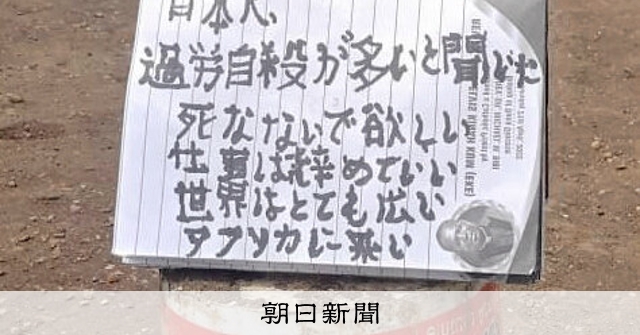 日本人、
過労自殺が多いと聞いた
死なないで欲しい
仕事は辞めていい
世界はとても広い
アフリカに来い
朝日新聞